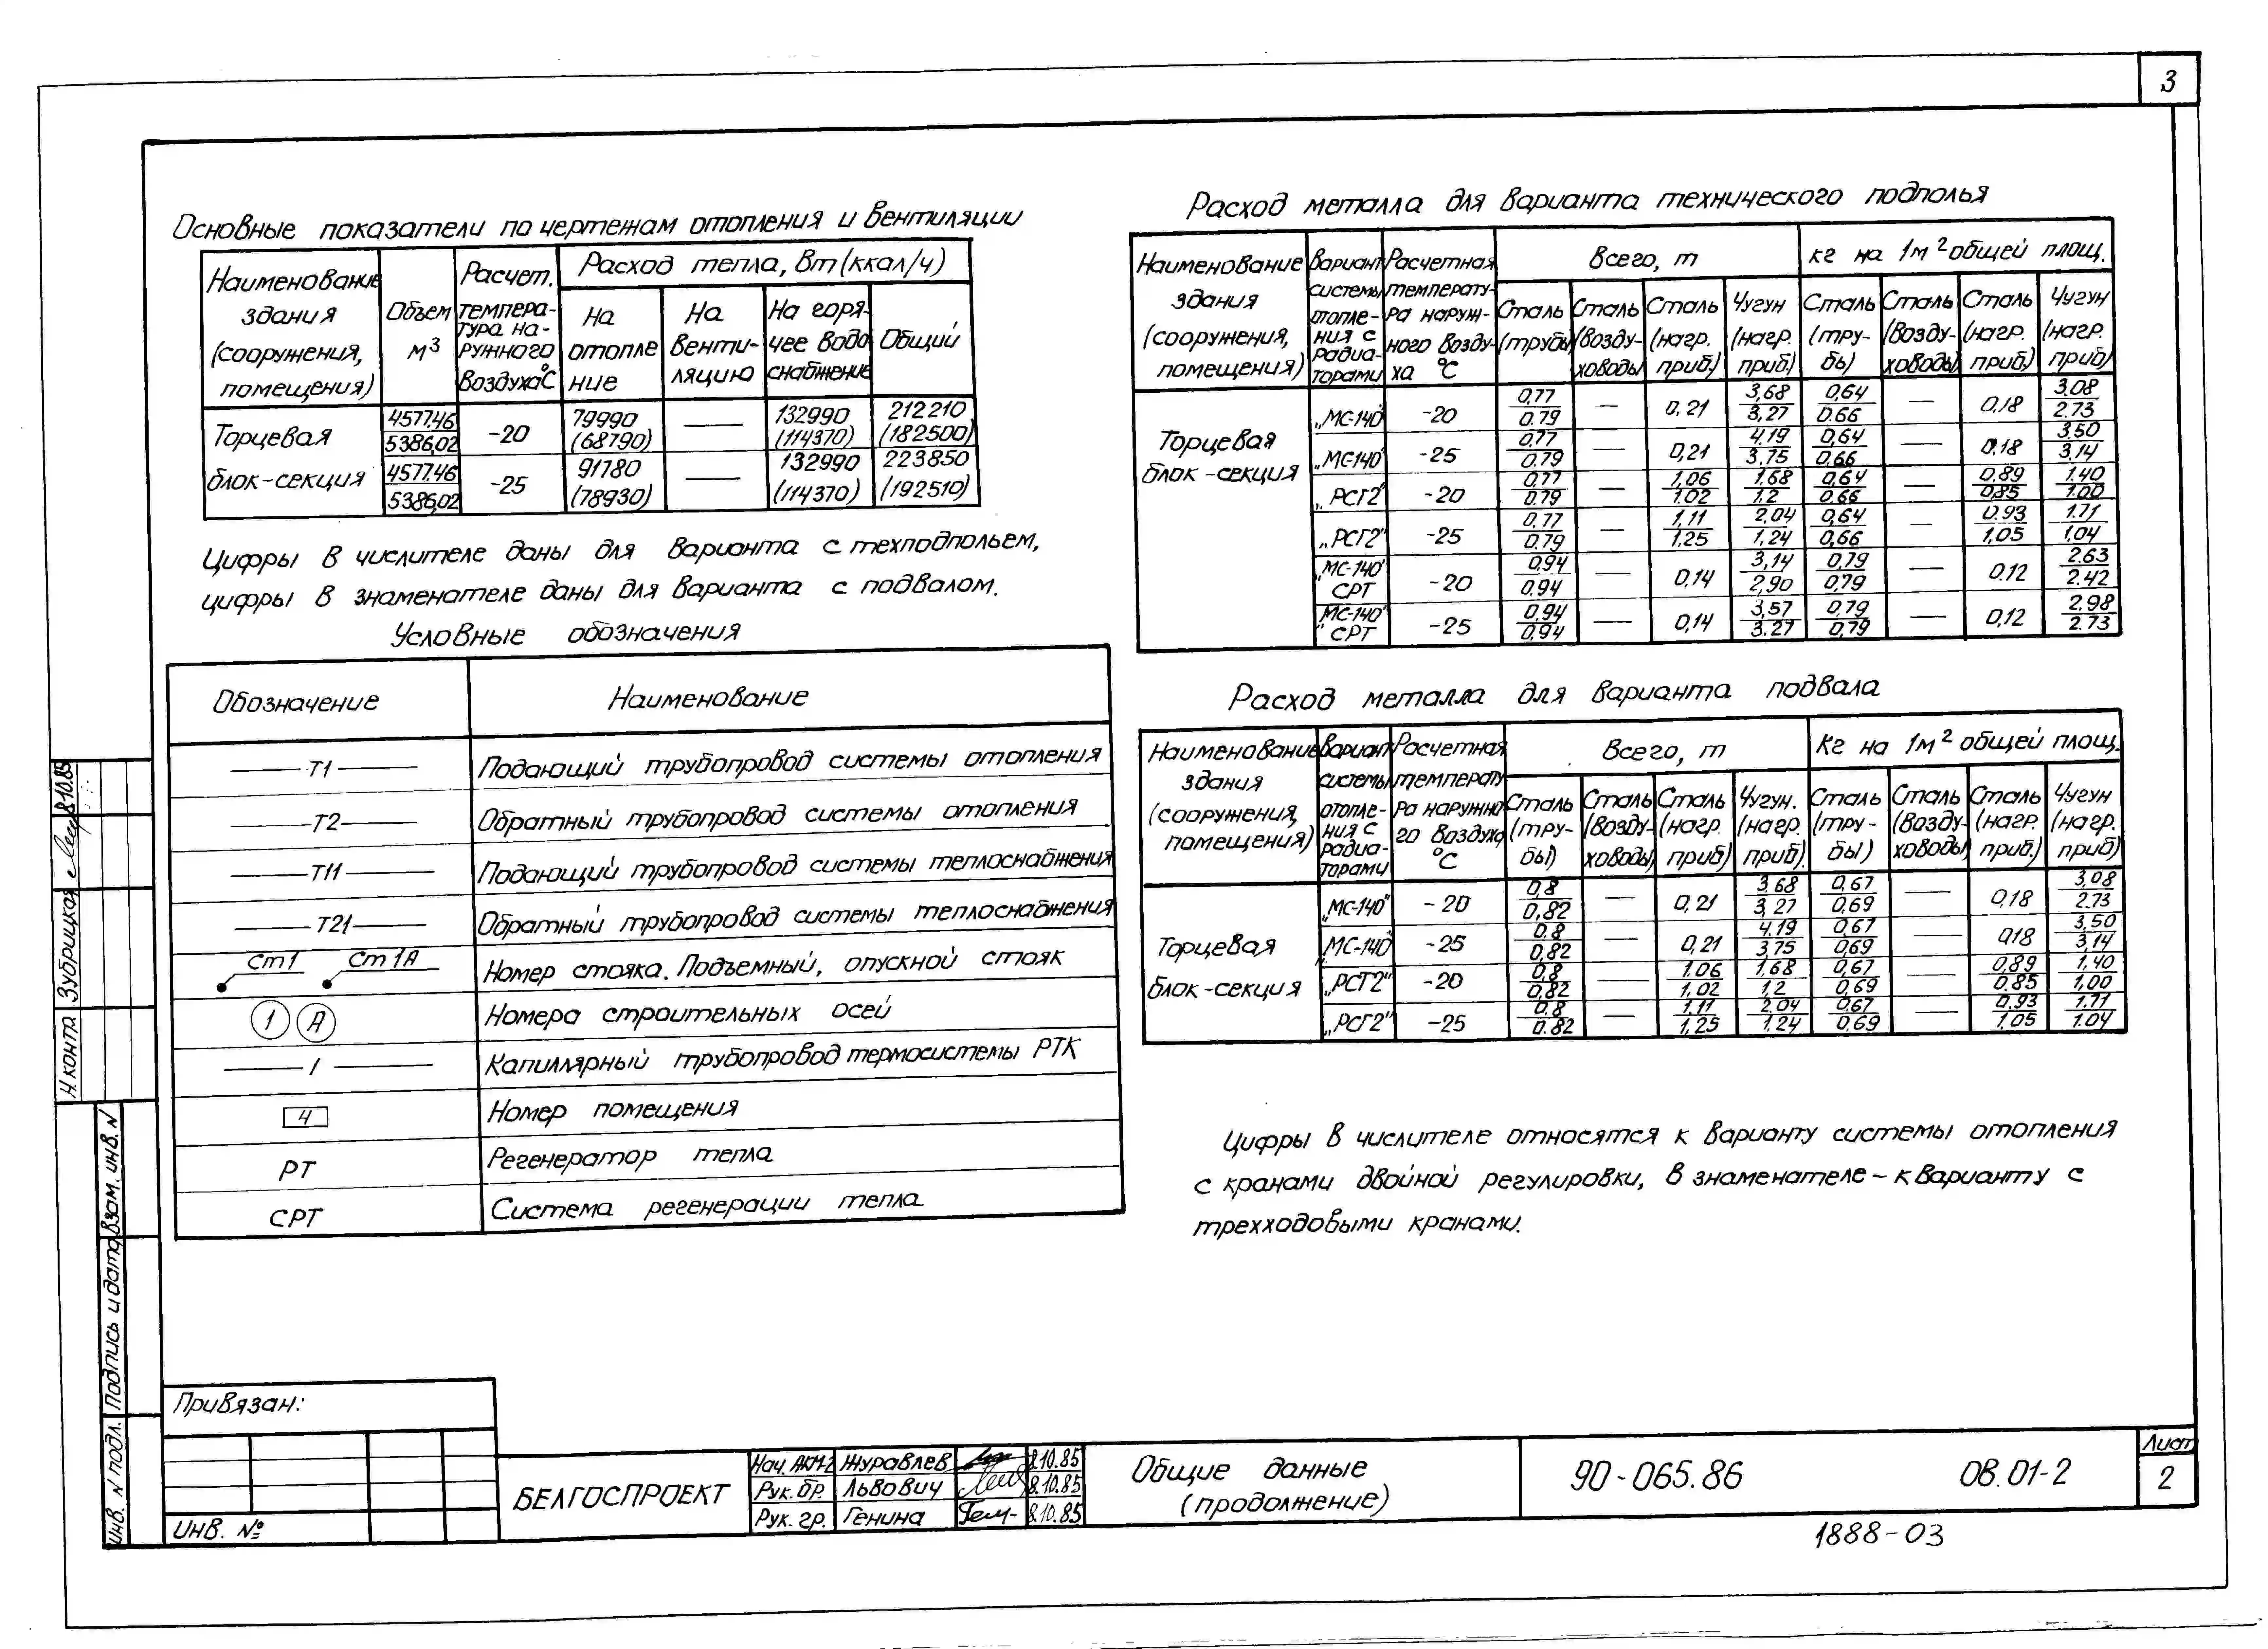 3
Основные показатели по чертежам отопления и вентиляции
Наименование здания (сооружения, помещения)
Объем м3
Расчет. температура наружного воздуха °С
Расход тепла, Вт (ккал/ч)
На отопление
На вентиляцию
На горячее водоснабжение
Общий
Торцевая блок-секция
4577.46 5386,02 -20 79990 (68790) — 132990 (114370) 212210 (182500)
4577.46 5386,02 -25 91780 (78930) — 132990 (114370) 223850 (192510)
Цифры в числителе даны для варианта с техподпольем,
цифры в знаменателе даны для варианта с подвалом.
Условные обозначения
Обозначение Наименование
Т1 Подающий трубопровод системы отопления
Т2 Обратный трубопровод системы отопления
Т11 Подающий трубопровод системы теплоснабжения
Т21 Обратный трубопровод системы теплоснабжения
Ст1 Ст1А Номер стояка. Подъемный, опускной стояк
1 А Номера строительных осей
/ Капиллярный трубопровод термосистемы РТК
4 Номер помещения
РТ Регенератор тепла
СРТ Система регенерации тепла
Расход металла для варианта технического подполья
Наименование здания (сооружения, помещения)
Вариант системы отопления с радиаторами
Расчетная температура наружного воздуха °С
Всего, т
кг на 1м2 общей площ.
Сталь (трубы) Сталь (воздуховоды) Сталь (нагр. приб.) Чугун (нагр. приб.) Сталь (трубы) Сталь (воздуховоды) Сталь (нагр. приб.) Чугун (нагр. приб)
Торцевая блок-секция
„МС-140" -20 0,77 0.79 — 0,21 3,68 3,27 0,64 0.66 — 0,18 3.08 2.73
„МС-140" -25 0,77 0.79 — 0,21 4,19 3,75 0,64 0.66 — 0.18 3.50 3,14
„РСГ2" -20 0,77 0.79 — 1,06 1.02 1,68 1,2 0,64 0.66 — 0,89 0,85 1.40 1.00
„РСГ2" -25 0,77 0.79 — 1,11 1.25 2,04 1,24 0,64 0,66 — 0.93 1,05 1.71 1,04
„МС-140" СРТ -20 0.94 0.94 — 0,14 3,14 2,90 0,79 0,79 — 0.12 2.63 2.42
„МС-140" СРТ -25 0,94 0.94 — 0,14 3,57 3.27 0,79 0,79 — 0,12 2.98 2.73
Расход металла для варианта подвала
Наименование здания (сооружения, помещения)
Вариант системы отопления с радиаторами
Расчетная температура наружного воздуха °С
Всего, т
Кг на 1м2 общей площ.
Сталь (трубы) Сталь (воздуховоды) Сталь (нагр. приб) Чугун. (нагр. приб). Сталь (трубы) Сталь (воздуховоды) Сталь (нагр. приб.) Чугун (нагр. приб)
Торцевая блок-секция
„МС-140" -20 0,8 0,82 — 0,21 3.68 3,27 0,67 0,69 — 0,18 3,08 2.73
„МС-140" -25 0.8 0,82 — 0,21 4.19 3,75 0,67 0,69 — 0,18 3,50 3,14
„РСГ2" -20 0,8 0,82 — 1.06 1,02 1,68 1,2 0,67 0,69 — 0,89 0.85 1,40 1,00
„РСГ2" -25 0.8 0.82 — 1,11 1,25 2,04 1,24 0,67 0,69 — 0.93 1.05 1.71 1.04
Цифры в числителе относятся к варианту системы отопления
с кранами двойной регулировки, в знаменателе - к варианту с
трехходовыми кранами.
Н.контр Зубрицкая 8.10.85
Взам. инв. N
Подпись и дата
Инв. N подл.
Привязан:
Инв. №
БЕЛГОСПРОЕКТ
Нач. АКМ-2 Журавлев 8.10.85
Рук. бр. Львович 8.10.85
Рук. гр. Генина 8.10.85
Общие данные
(продолжение)
90-065.86 ОВ.01-2
Лист
2
1888-03